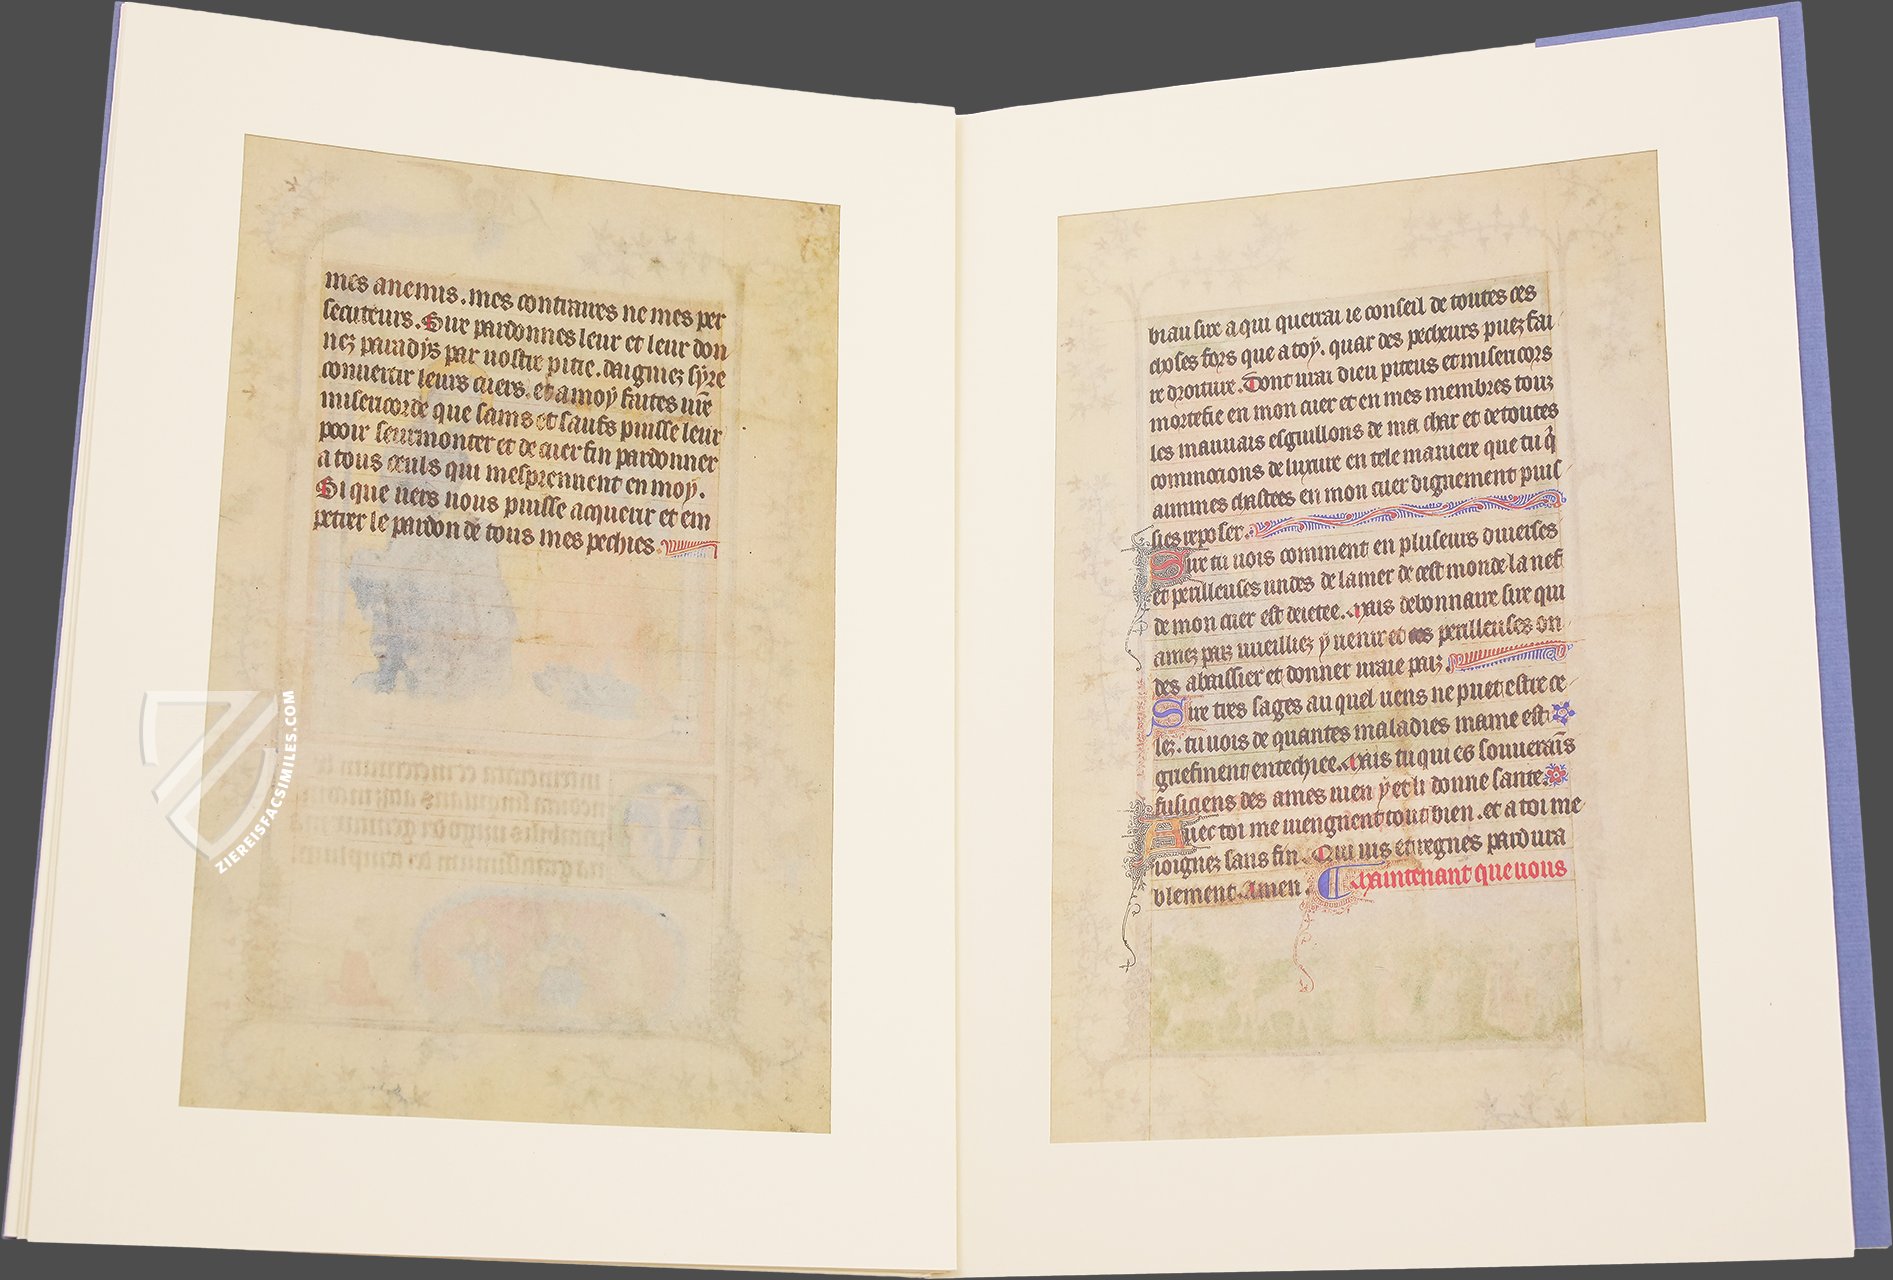 mes anemis. mes contraires ne mes per
secuteurs. Sire pardonnes leur et leur don
nez paradys par uostre pitie. daigniez syre
conuertir leurs cuers. et a moy faites ure
misericorde que sains et saufs puisse leur
pooir seurmonter et de cuer fin pardonner
a tous ceuls qui mesprennent en moy.
Si que uers uous puisse acquerir et em
petrer le pardon de tous mes pechies.
ZIEREISFACSIMILES.COM
biau sire a qui querrai ie conseil de toutes ces
choses fors que a toy. quar des pecheurs puez fai
re droiture. Dont urai dieu piteus et misericors
mortefie en mon cuer et en mes membres touz
les mauuais esguillons de ma char et de toutes
commocions de luxure en tele maniere que tu q
aimmes chastees en mon cuer dignement puis
ses reposer.
Sire tu uois comment en pluseurs diuerses
et perilleuses undes de la mer de cest monde la nef
de mon cuer est deietee. Mais debonnaire sire qui
amez paiz uueilliez y uenir et ces perilleuses on
des abaissier et donner uraie paiz
Sire tres sages au quel riens ne puet estre ce
lez. tu uois de quantes maladies mame est
griefment entechiee. Mais tu qui es souuerains
fusiciens des ames uien y et li donne sante.
Auec toi me uiengnent tout bien. et a toi me
ioignez sans fin. Qui uis et regnes pardura
blement. Amen. Maintenant que uous